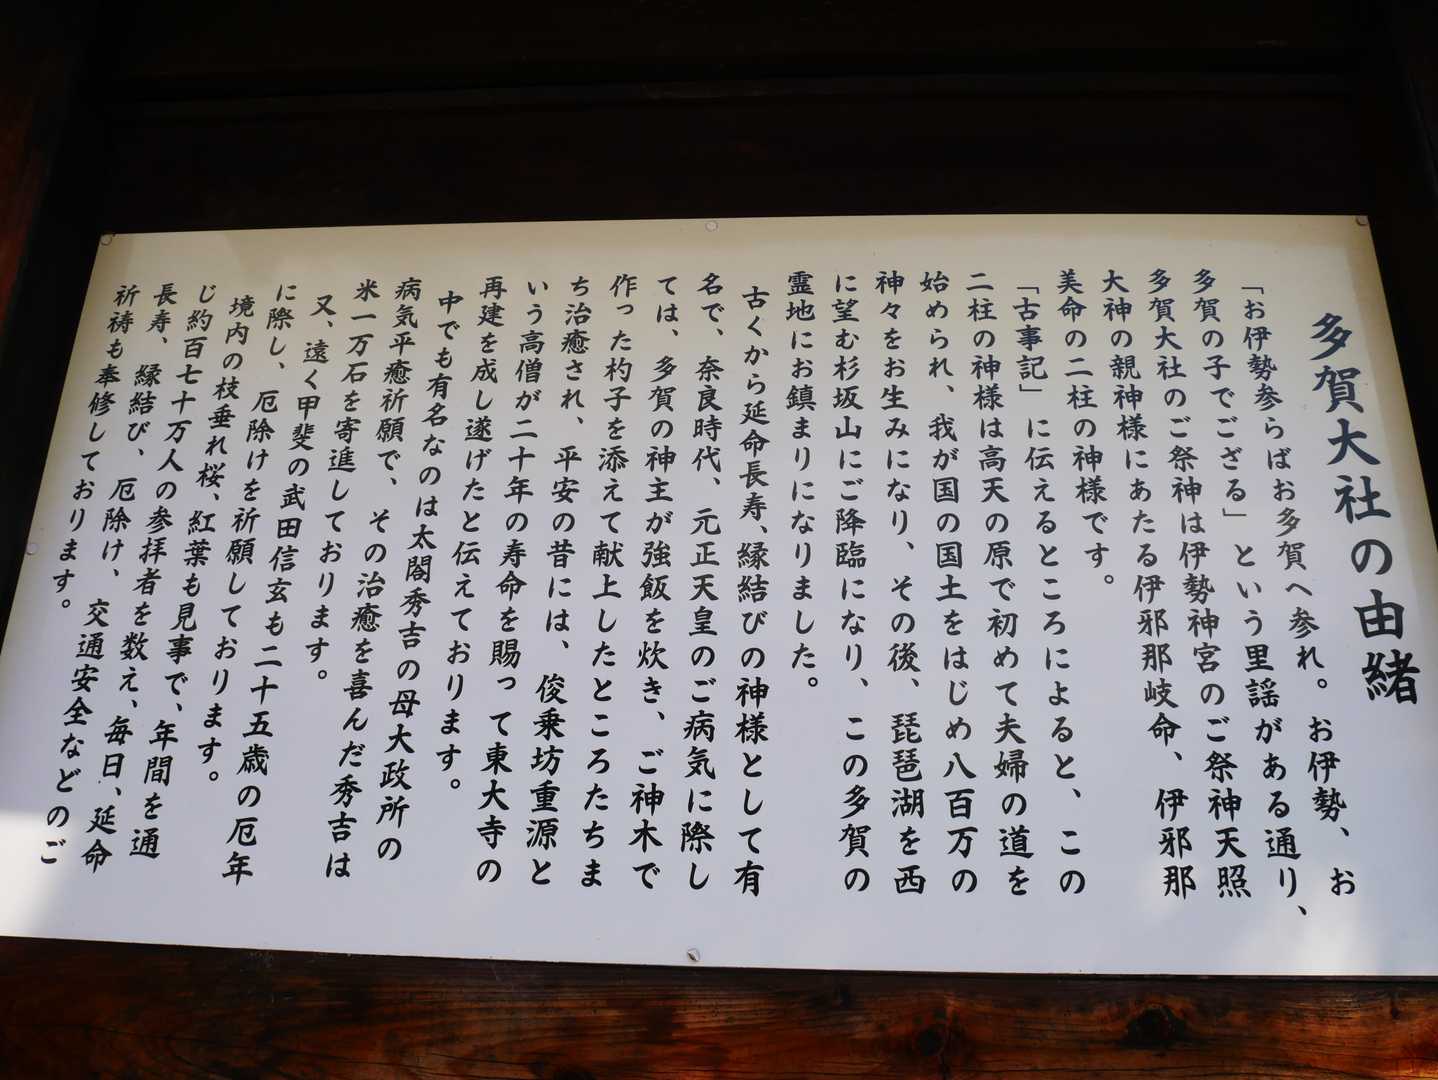 多賀大社の由緒
「お伊勢参らばお多賀へ参れ。お伊勢、お
多賀の子でござる」という里謡がある通り、
多賀大社のご祭神は伊勢神宮のご祭神天照
大神の親神様にあたる伊邪那岐命、伊邪那
美命の二柱の神様です。
「古事記」に伝えるところによると、この
二柱の神様は高天の原で初めて夫婦の道を
始められ、我が国の国土をはじめ八百万の
神々をお生みになり、その後、琵琶湖を西
に望む杉坂山にご降臨になり、この多賀の
霊地にお鎮まりになりました。
古くから延命長寿、縁結びの神様として有
名で、奈良時代、元正天皇のご病気に際し
ては、多賀の神主が強飯を炊き、ご神木で
作った杓子を添えて献上したところたちま
ち治癒され、平安の昔には、俊乗坊重源と
いう高僧が二十年の寿命を賜って東大寺の
再建を成し遂げたと伝えております。
中でも有名なのは太閤秀吉の母大政所の
病気平癒祈願で、その治癒を喜んだ秀吉は
米一万石を寄進しております。
又、遠く甲斐の武田信玄も二十五歳の厄年
に際し、厄除けを祈願しております。
境内の枝垂れ桜、紅葉も見事で、年間を通
じ約百七十万人の参拝者を数え、毎日、延命
長寿、縁結び、厄除け、交通安全などのご
祈祷も奉修しております。